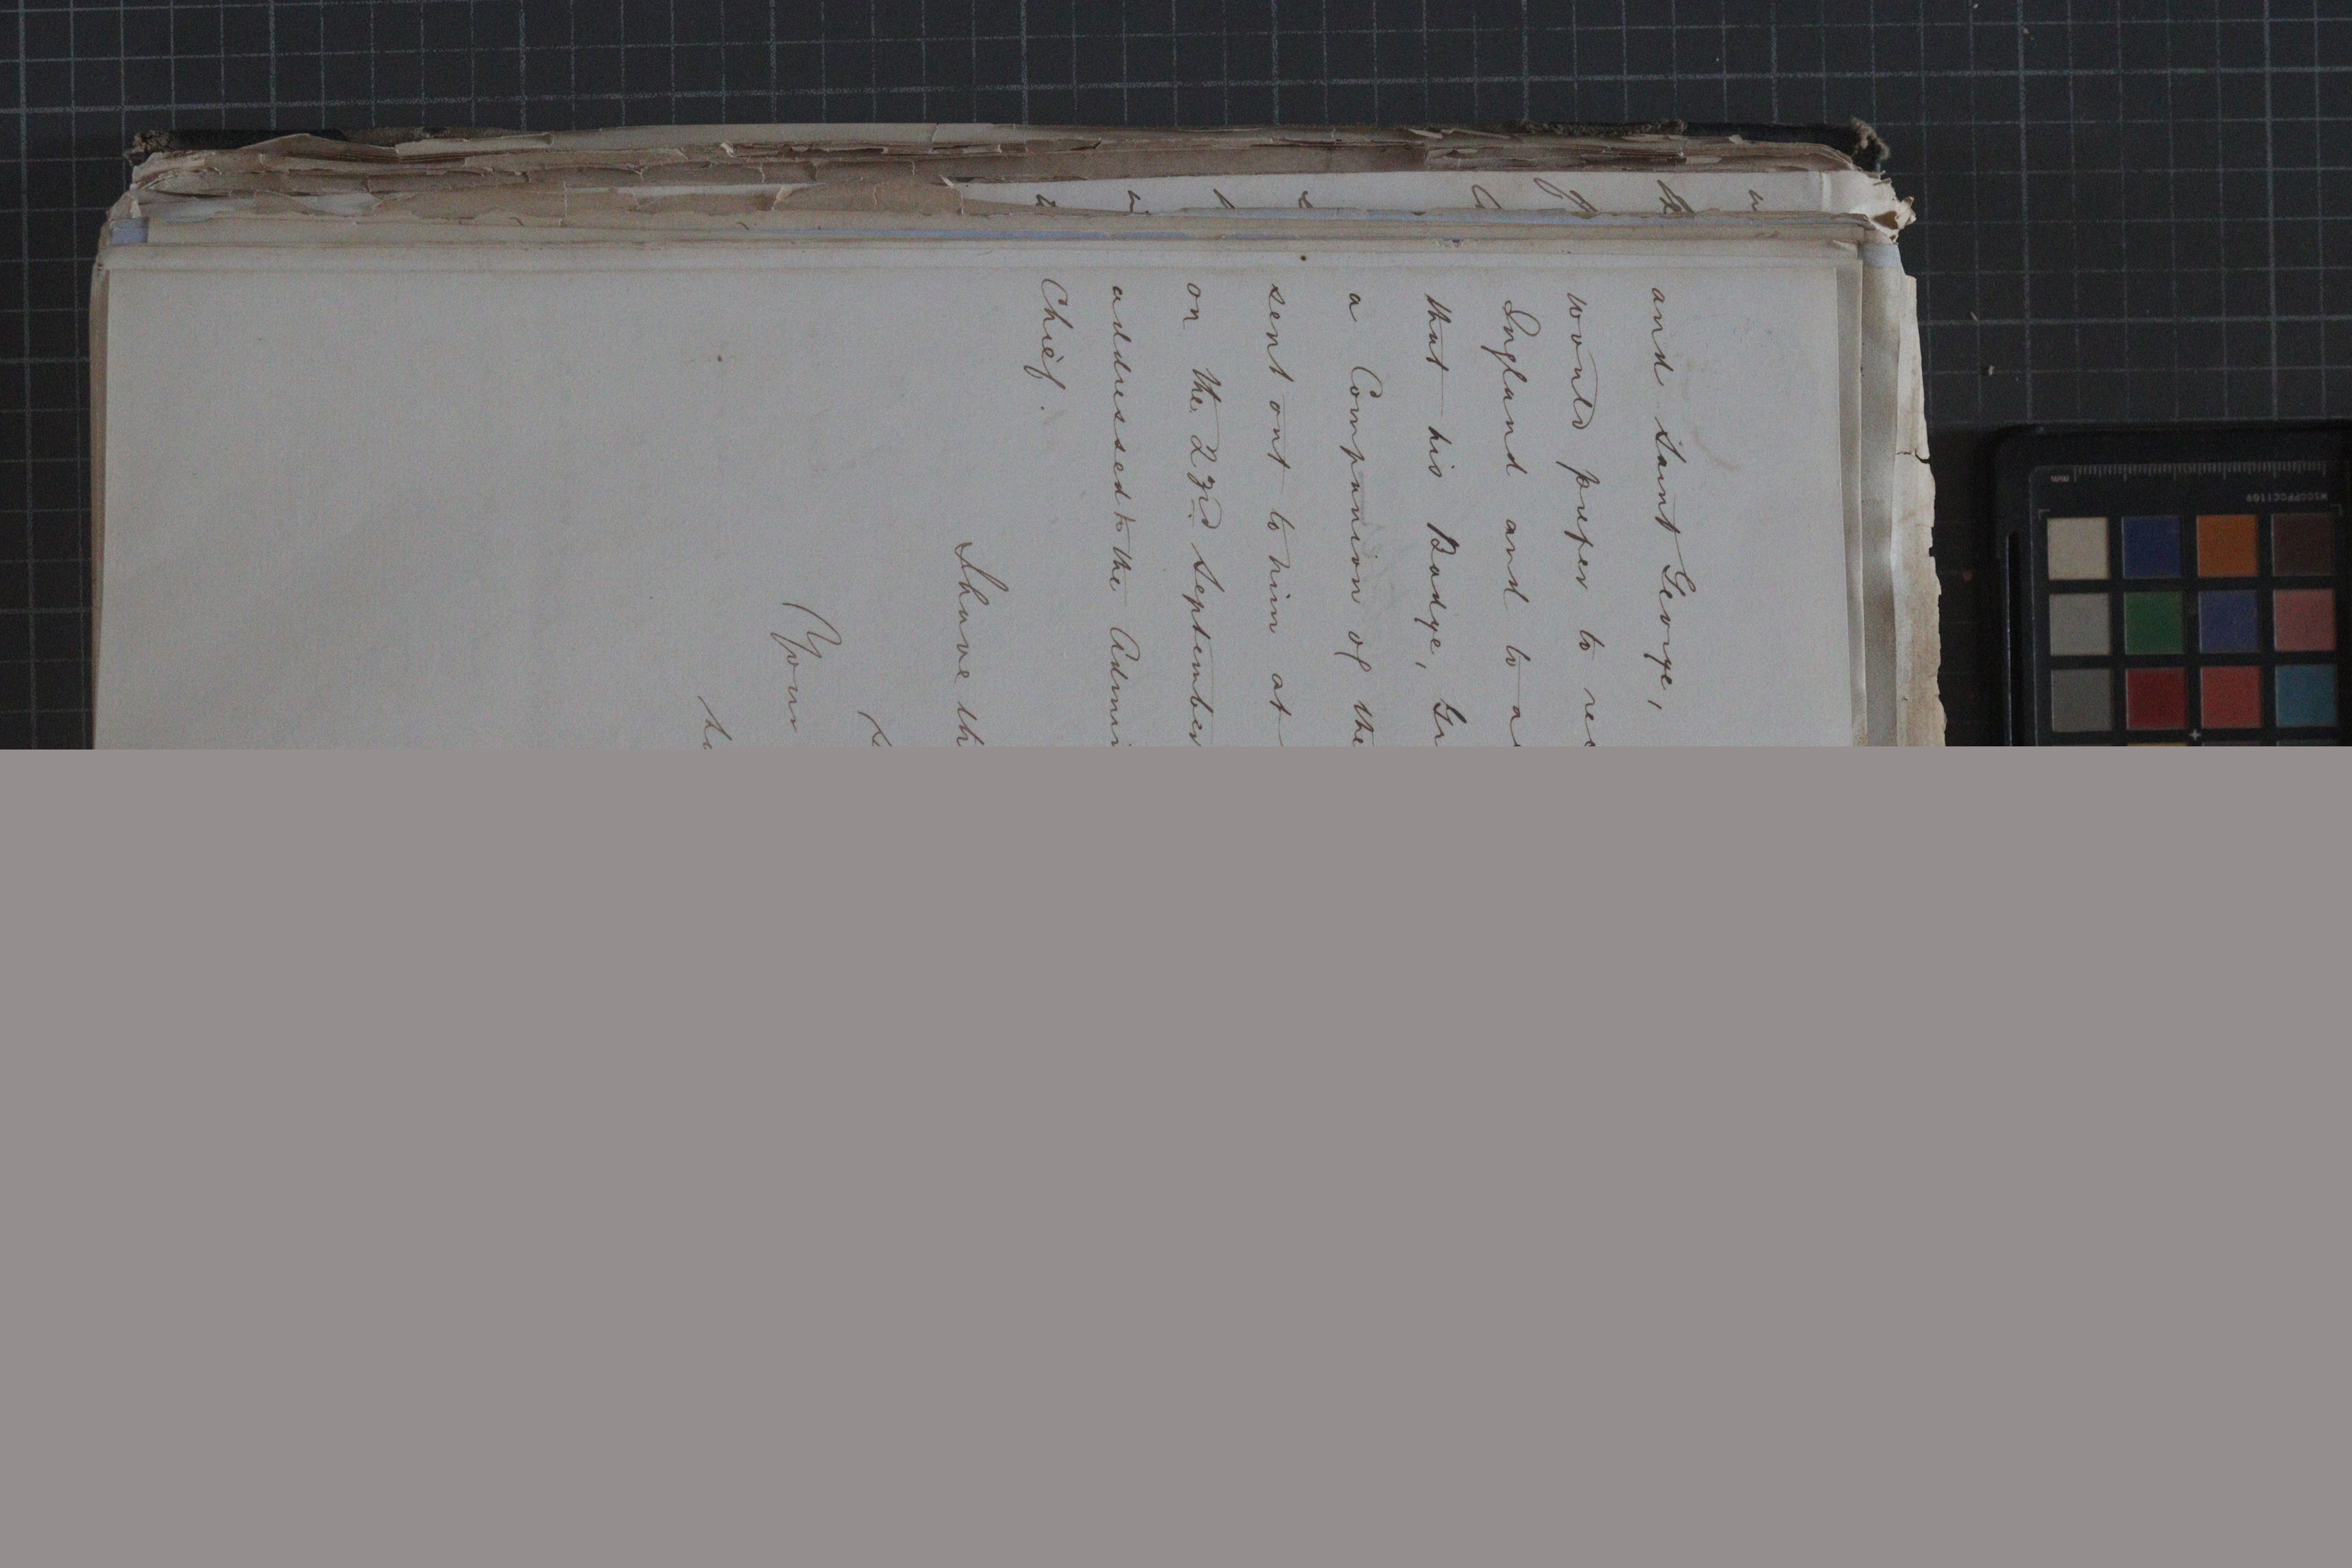 and Saint George,
would prefer to rec
England and to a
that his Badge, Gr
a Companion of the
sent out to him at
on the 23rd September
addressed to the Admi
Chief.
I have th
Your